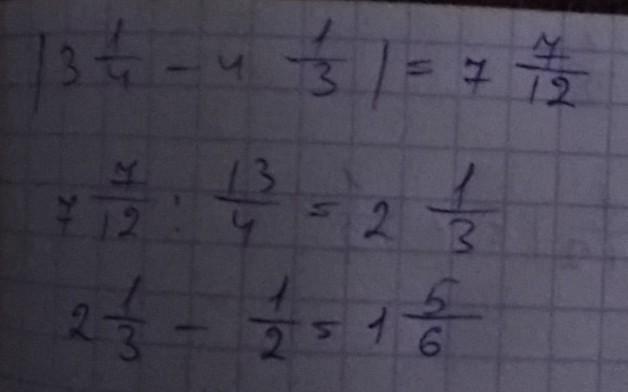 |3 1/4 - 4 1/3| = 7 7/12
7 7/12 : 13/4 = 2 1/3
2 1/3 - 1/2 = 1 5/6